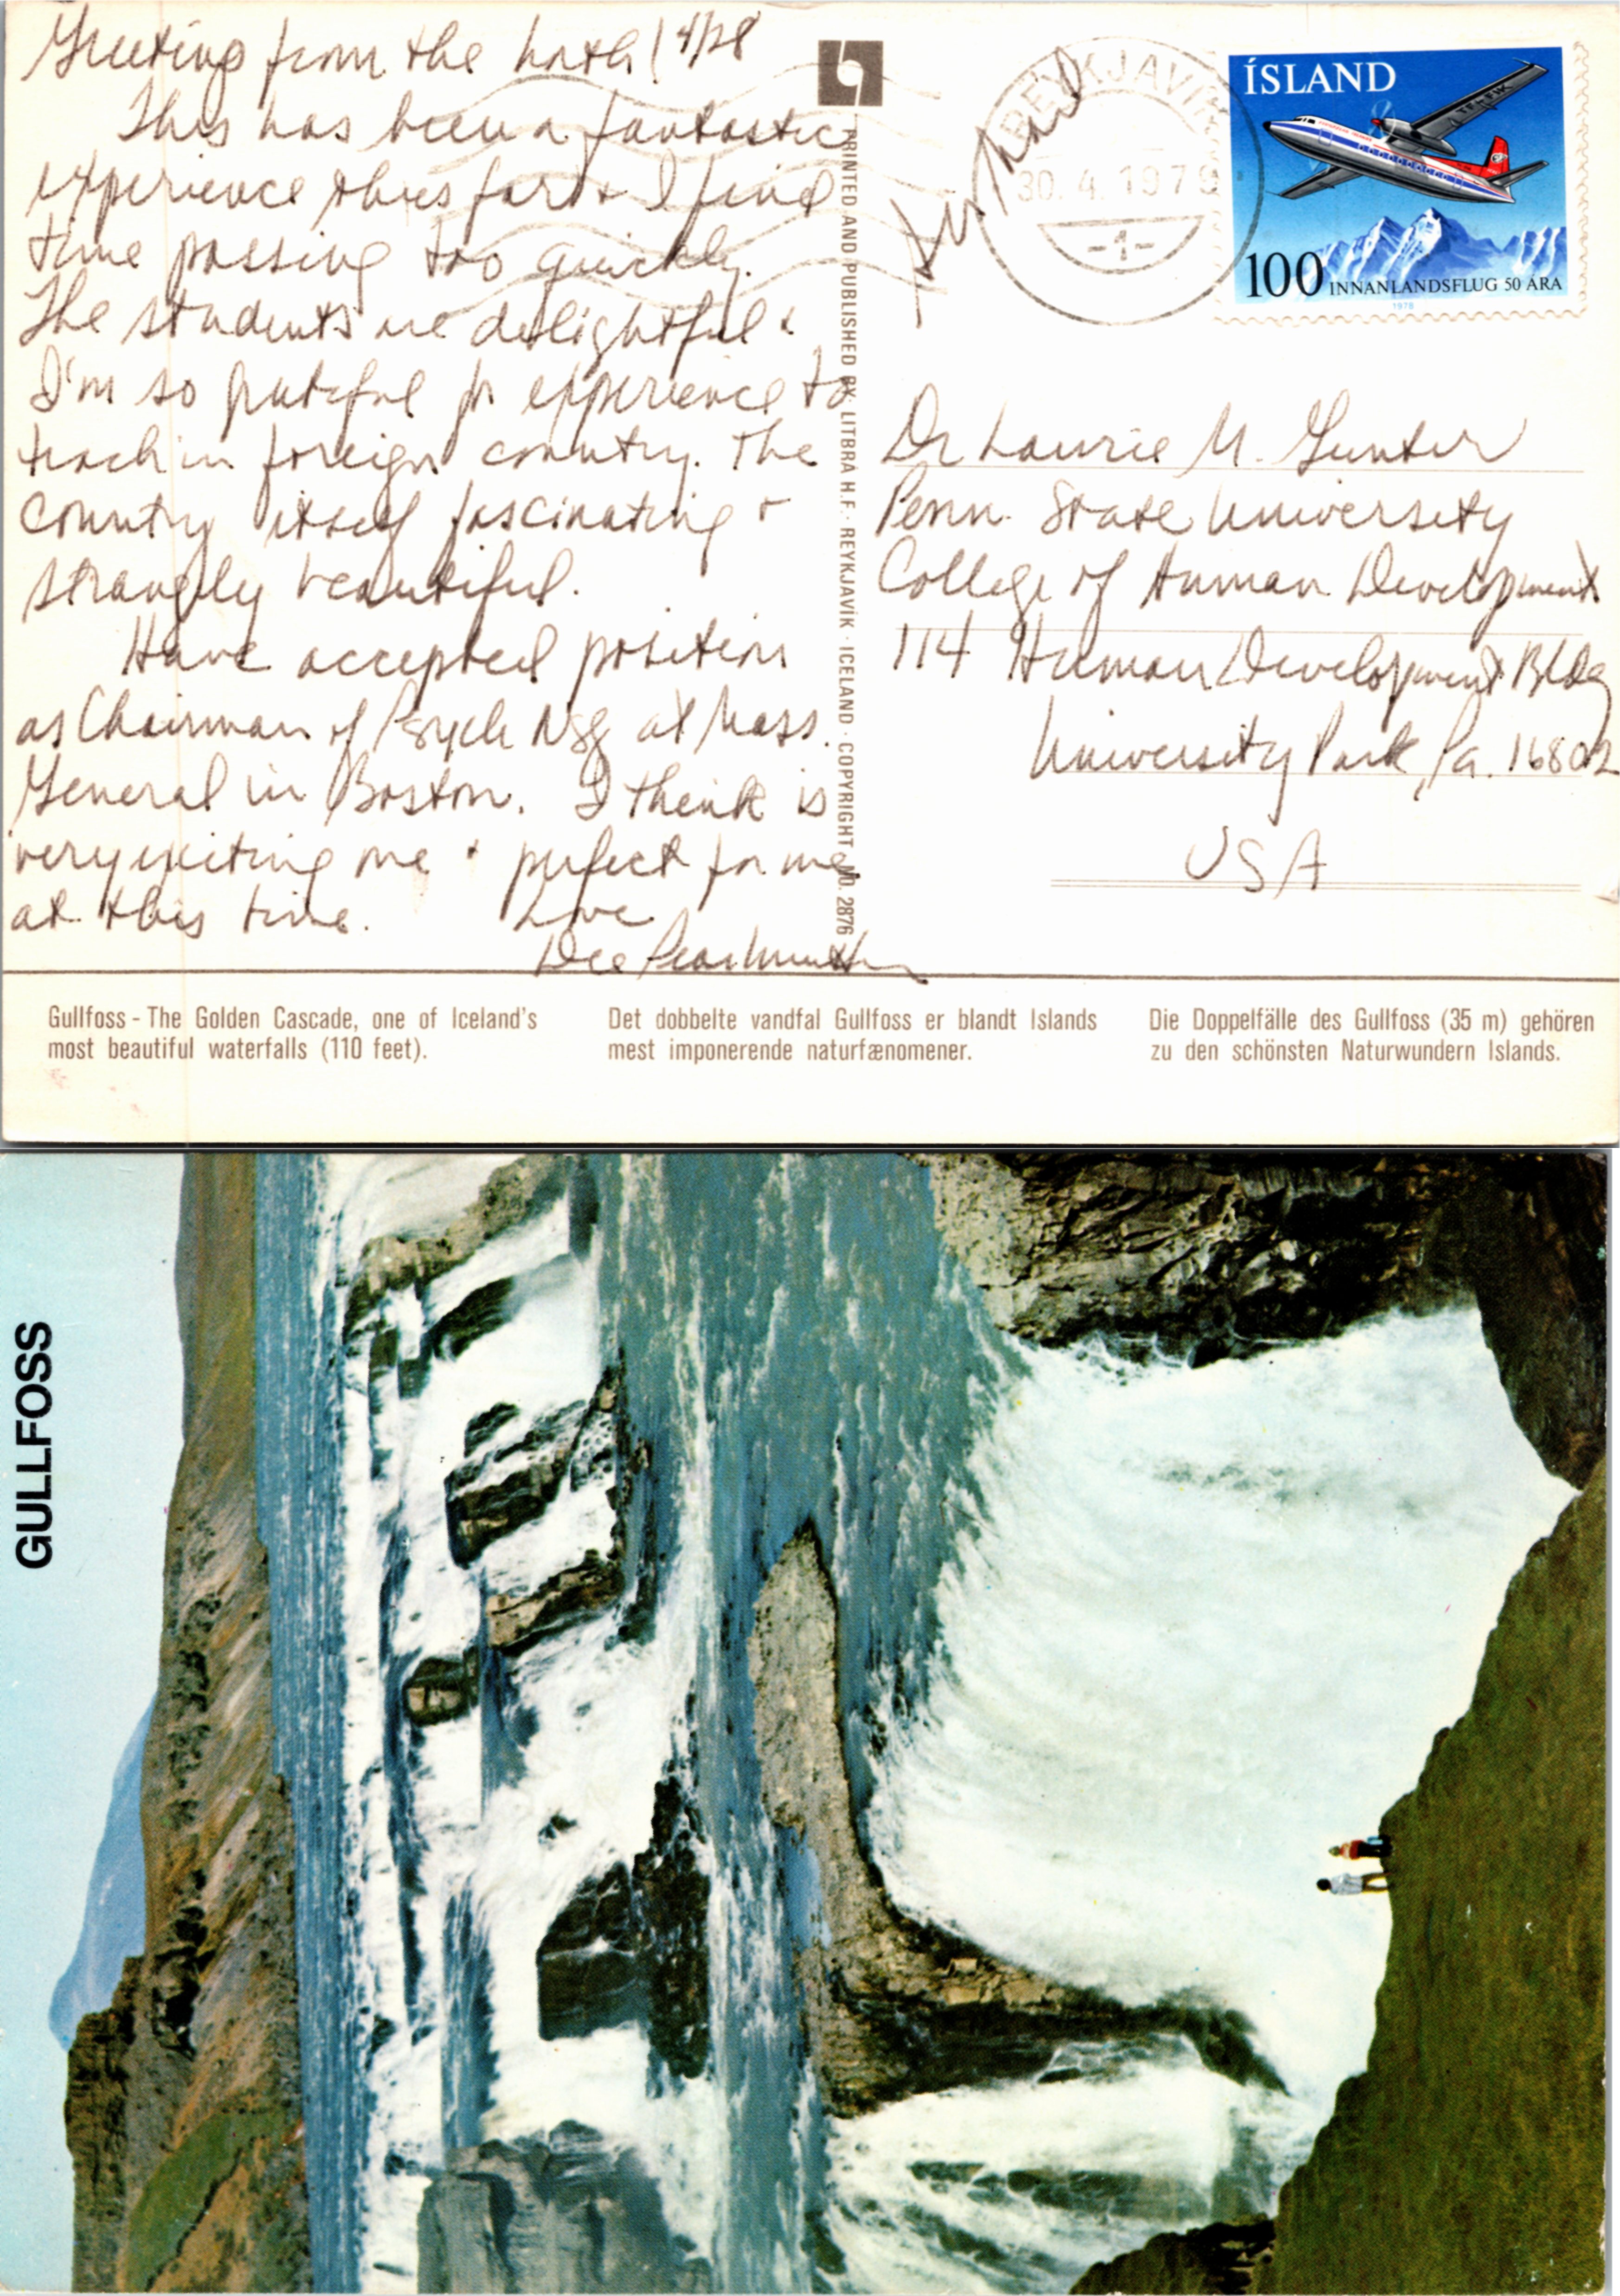 Greeting from the north! 4/28
This has been a fantastic
experience thus far + I find
time passing too quickly.
The students are delightful &
I'm so grateful for experience to
teach in foreign country. The
country itself fascinating +
strangly beautiful.
Have accepted position
as Chairman of Psych Nsg at Mass.
General in Boston. I think is
very exiting one + perfect for me
at this time. Love
Dee
PRINTED AND PUBLISHED BY: LITBRÁ H.F. · REYKJAVÍK · ICELAND · COPYRIGHT NO. 2876
Air Mail
REYKJAVÍK
30.4.1979
-1-
ÍSLAND
TF-FIK
100 INNANLANDSFLUG 50 ÁRA
1978
Dr Laurie M. Gunter
Penn. State University
College of Human Development
114 Human Development Bldg
University Park, Pa. 16802
USA
Gullfoss - The Golden Cascade, one of Iceland's
most beautiful waterfalls (110 feet).
Det dobbelte vandfal Gullfoss er blandt Islands
mest imponerende naturfænomener.
Die Doppelfälle des Gullfoss (35 m) gehören
zu den schönsten Naturwundern Islands.
GULLFOSS